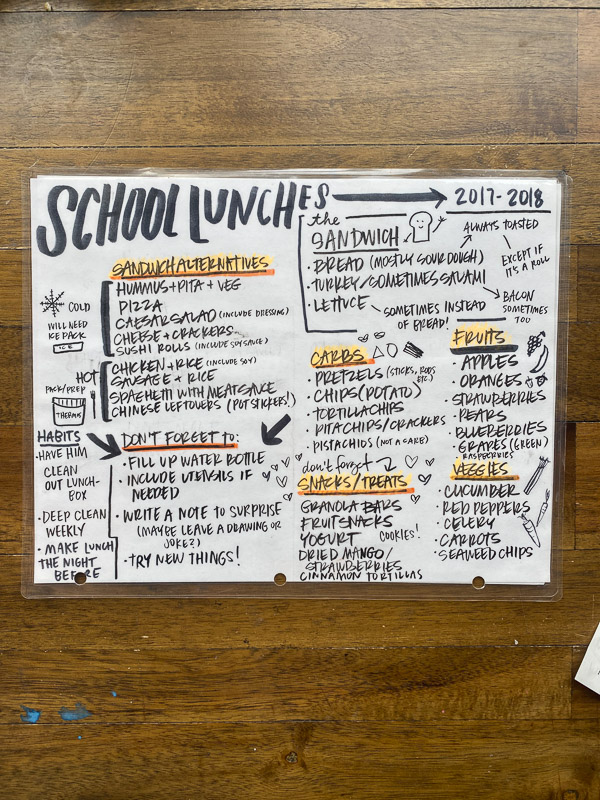 SCHOOL LUNCHES → 2017-2018
SANDWICH ALTERNATIVES
COLD
WILL NEED
ICE PACK
ICE
HUMMUS + PITA + VEG
PIZZA
CAESAR SALAD (INCLUDE DRESSING)
CHEESE + CRACKERS
SUSHI ROLLS (INCLUDE SOY SAUCE)
HOT
PACK/PREP
THERMOS
CHICKEN + RICE (INCLUDE SOY)
SAUSAGE + RICE
SPAGHETTI WITH MEAT SAUCE
CHINESE LEFTOVERS (POT STICKERS!)
HABITS
• HAVE HIM
CLEAN
OUT LUNCH-
BOX
• DEEP CLEAN
WEEKLY
• MAKE LUNCH
THE NIGHT
BEFORE
DON'T FORGET to:
• FILL UP WATER BOTTLE
• INCLUDE UTENSILS IF
NEEDED
• WRITE A NOTE TO SURPRISE
(MAYBE LEAVE A DRAWING OR
JOKE?)
• TRY NEW THINGS!
the
SANDWICH
• BREAD (MOSTLY SOURDOUGH)
• TURKEY/SOMETIMES SALAMI
• LETTUCE
SOMETIMES INSTEAD
OF BREAD!
ALWAYS TOASTED
EXCEPT IF
IT'S A ROLL
BACON
SOMETIMES
TOO
CARBS
• PRETZELS (STICKS, RODS
ETC.)
• CHIPS (POTATO)
• TORTILLA CHIPS
• PITA CHIPS/CRACKERS
• PISTACHIOS (NOT A CARB)
don't forget
SNACKS/TREATS
GRANOLA BARS
FRUIT SNACKS
YOGURT COOKIES!
DRIED MANGO/
STRAWBERRIES
CINNAMON TORTILLAS
FRUITS
• APPLES
• ORANGES
• STRAWBERRIES
• PEARS
• BLUEBERRIES
• GRAPES (GREEN)
RASPBERRIES
VEGGIES
• CUCUMBER
• RED PEPPERS
• CELERY
• CARROTS
• SEAWEED CHIPS